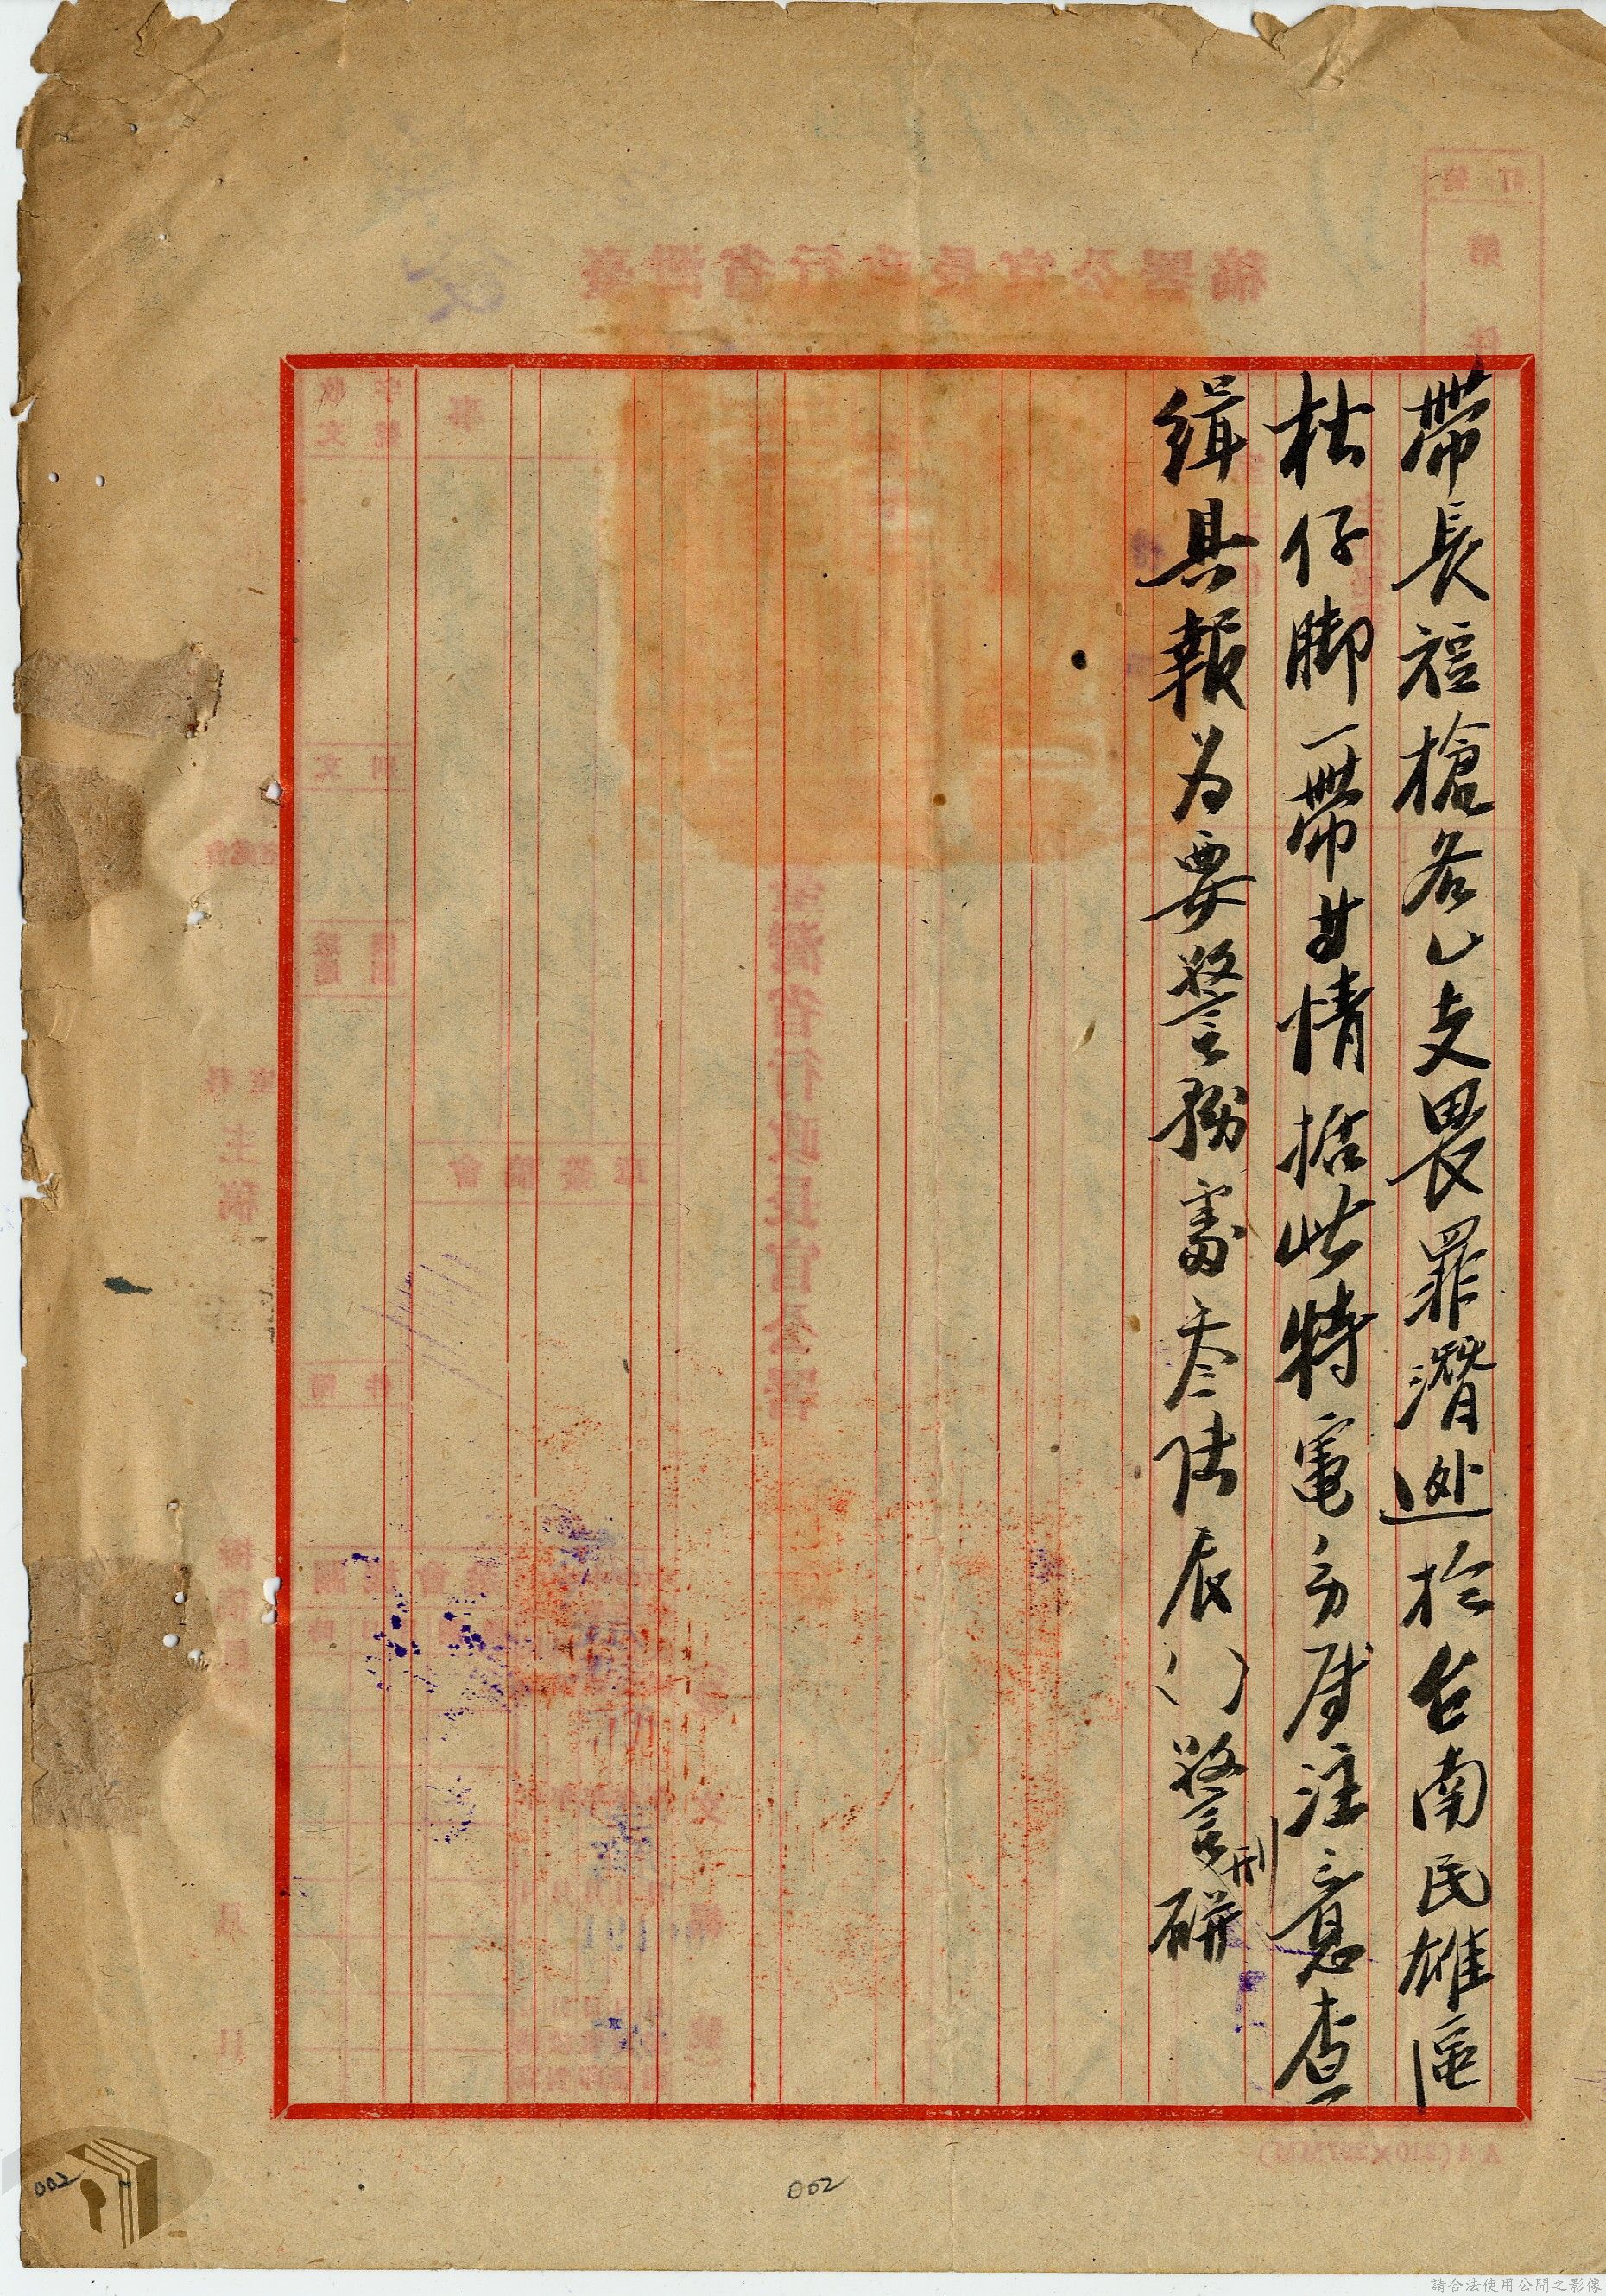 帶長短槍各乙支畏罪潛逃於台南民雄區
杜仔脚一帶等情據此特電分屬注意查
緝具報为要警務處叁陆辰()警刑
002
002
請合法使用公開之影像